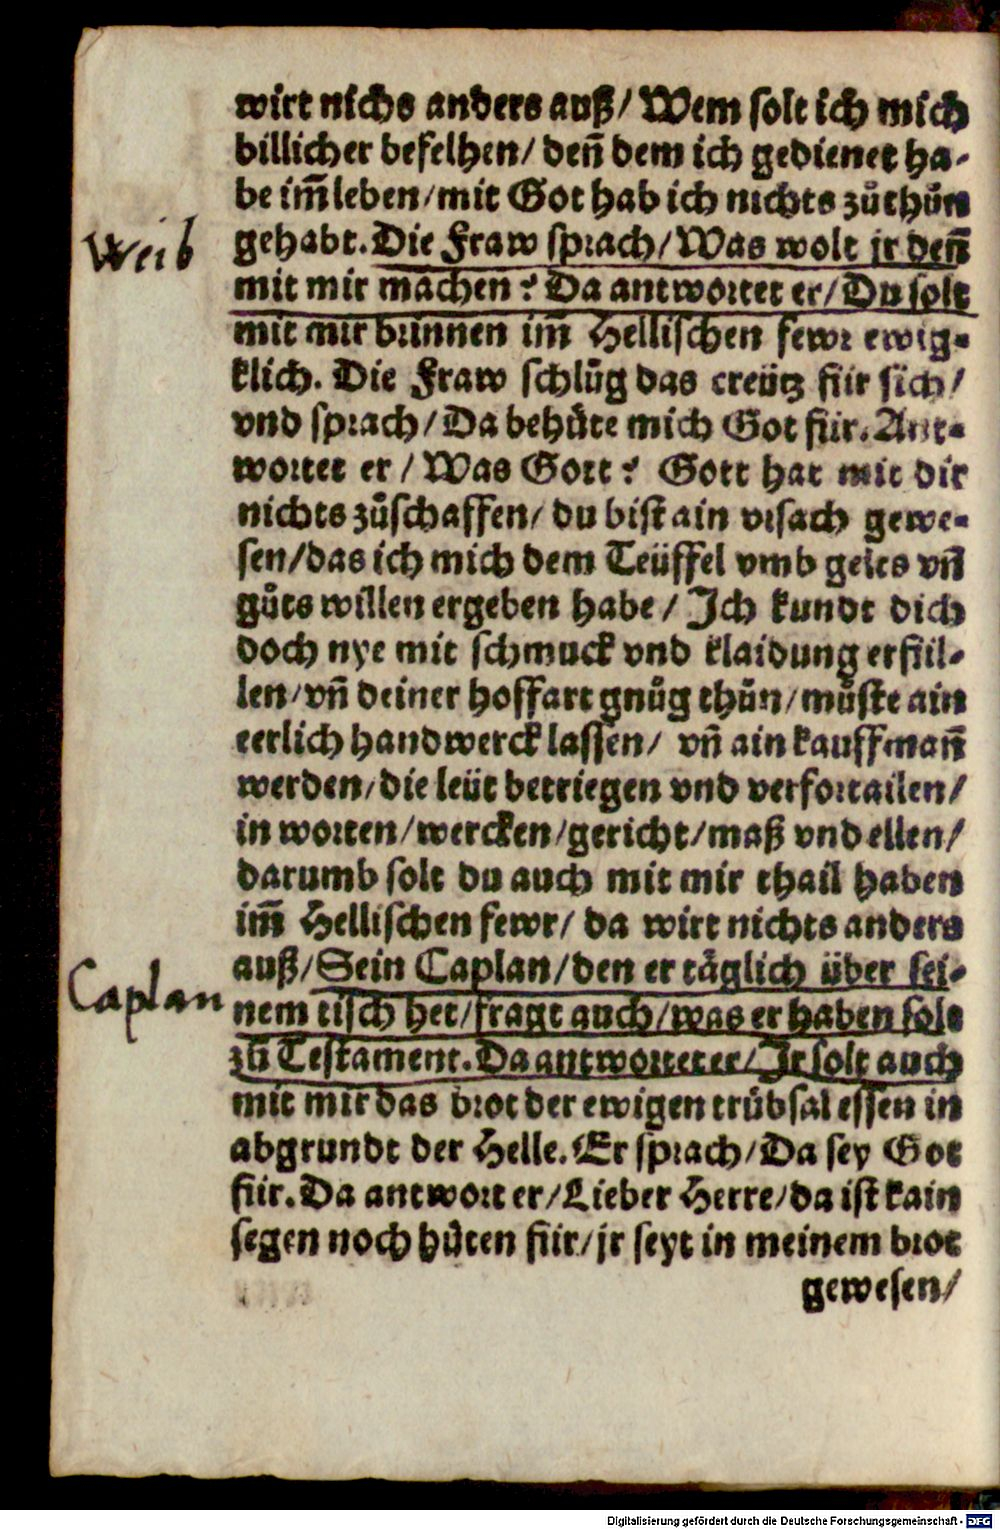 wirt nichs anders auß/ Wem solt ich mich
billicher befelhen/ deñ dem ich gedienet ha-
be im̃ leben/mit Got hab ich nichts zůthůn
Weib
gehabt. Die Fraw sprach/ Was wolt jr deñ
mit mir machen? Da antwortet er/ Du solt
mit mir brinnen im̃ Hellischen fewr ewig-
klich. Die Fraw schlůg das creütz für sich/
vnd sprach/ Da behůte mich Got für. Ant-
wortet er/ Was Gott? Gott hat mit dir
nichts zůschaffen/ du bist ain vrsach gewe-
sen/das ich mich dem Teüffel vmb gelts vñ
gůts willen ergeben habe/ Ich kundt dich
doch nye mit schmuck vnd klaidung erfül-
len/vñ deiner hoffart gnůg thůn/můste ain
eerlich handwerck lassen/ vñ ain kauffmañ
werden/die leüt betriegen vnd verfortailen/
in worten/wercken/gericht/maß vnd ellen/
darumb solt du auch mit mir thail haben
im̃ Hellischen fewr/ da wirt nichts anders
auß/Sein Caplan/den er täglich über sei-
Caplan
nem tisch het/fragt auch/was er haben solt
zů Testament. Da antworteter/Jr solt auch
mit mir das brot der ewigen trůbsal essen in
abgrundt der Helle. Er sprach/Da sey Got
für. Da antwort er/Lieber Herre/da ist kain
segen noch hůten für/jr seyt in meinem brot
gewesen/
Digitalisierung gefördert durch die Deutsche Forschungsgemeinschaft - DFG